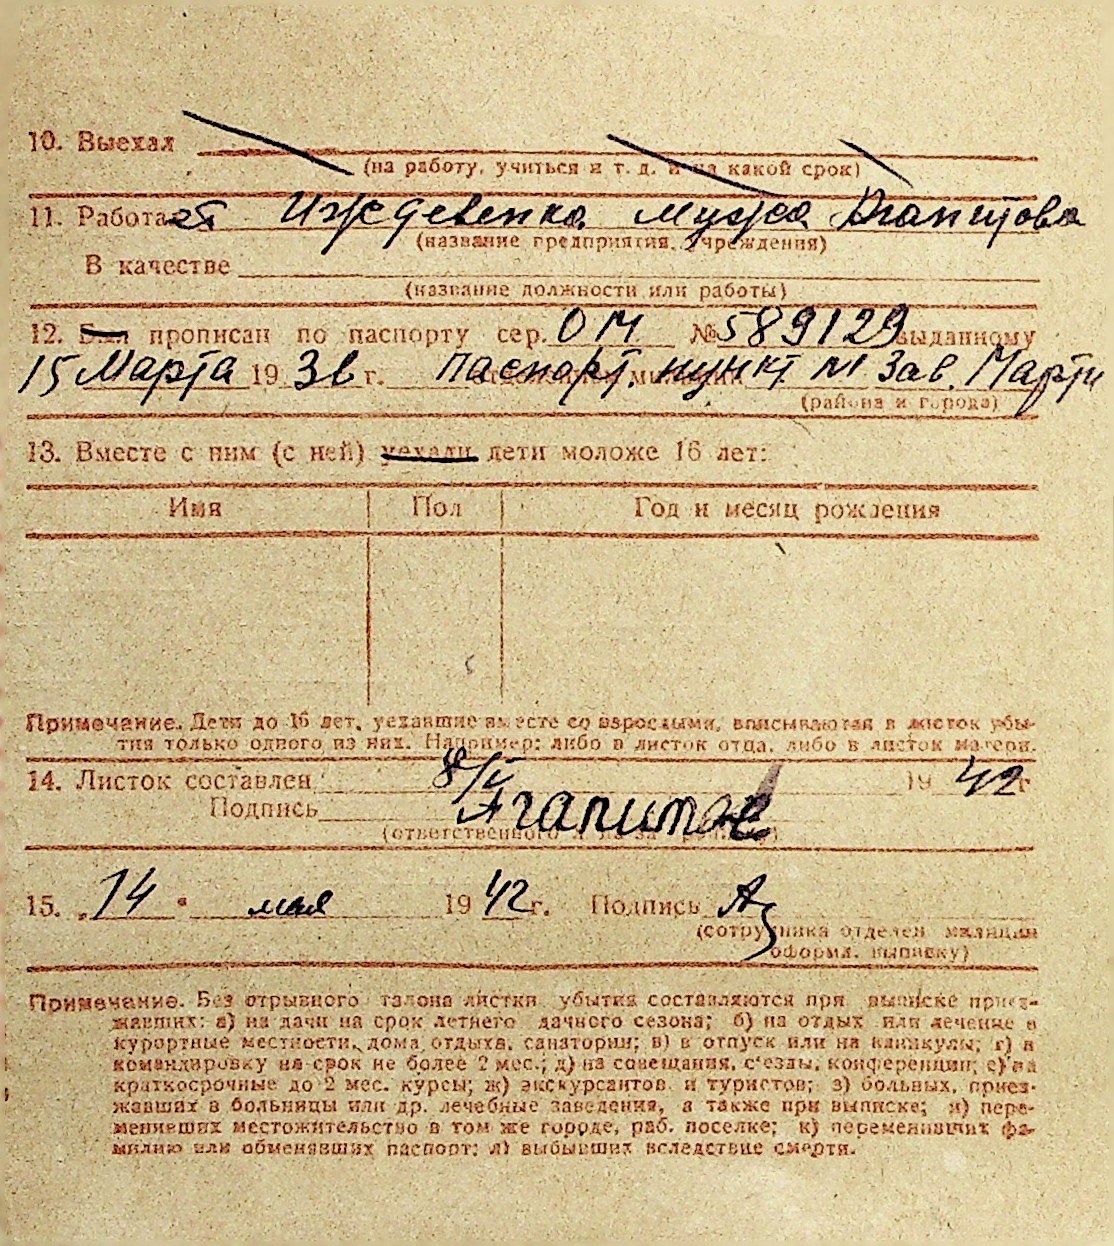 10. Выехал
(на работу, учиться и т. д. и на какой срок)
11. Работает Иждевенка мужа Агапитова
(название предприятия, учреждения)
В качестве
(название должности или работы)
12. Был прописан по паспорту сер. ОМ № 589129 выданному
15 Марта 19 36 г. Паспорт. пункт. М Зав. Марти
(района и города)
13. Вместе с ним (с ней) уехали дети моложе 16 лет:
Имя Пол Год и месяц рождения
Примечание. Дети до 16 лет, уехавшие вместе со взрослыми, вписываются в листок убы-
тия только одного из них. Например: либо в листок отца, либо в листок матери.
14. Листок составлен 8/V 19 42 г
Подпись Агапитов
(ответственного за)
15. „14" мая 19 42 г. Подпись
(сотрудника отделен милиции
оформл. выписку)
Примечание. Без отрывного талона листки убытия составляются при выписке приез-
жавших: а) на дачи на срок летнего дачного сезона; б) на отдых или лечение в
курортные местности, дома отдыха, санатории; в) в отпуск или на каникулы; г) в
командировку на срок не более 2 мес.; д) на совещания, с'езды, конференции; е) на
краткосрочные до 2 мес. курсы; ж) экскурсантов и туристов; з) больных, приез-
жавших в больницы или др. лечебные заведения, а также при выписке; и) пере-
менивших местожительство в том же городе, раб. поселке; к) переменивших фа-
милию или обменявших паспорт; л) выбывших вследствие смерти.